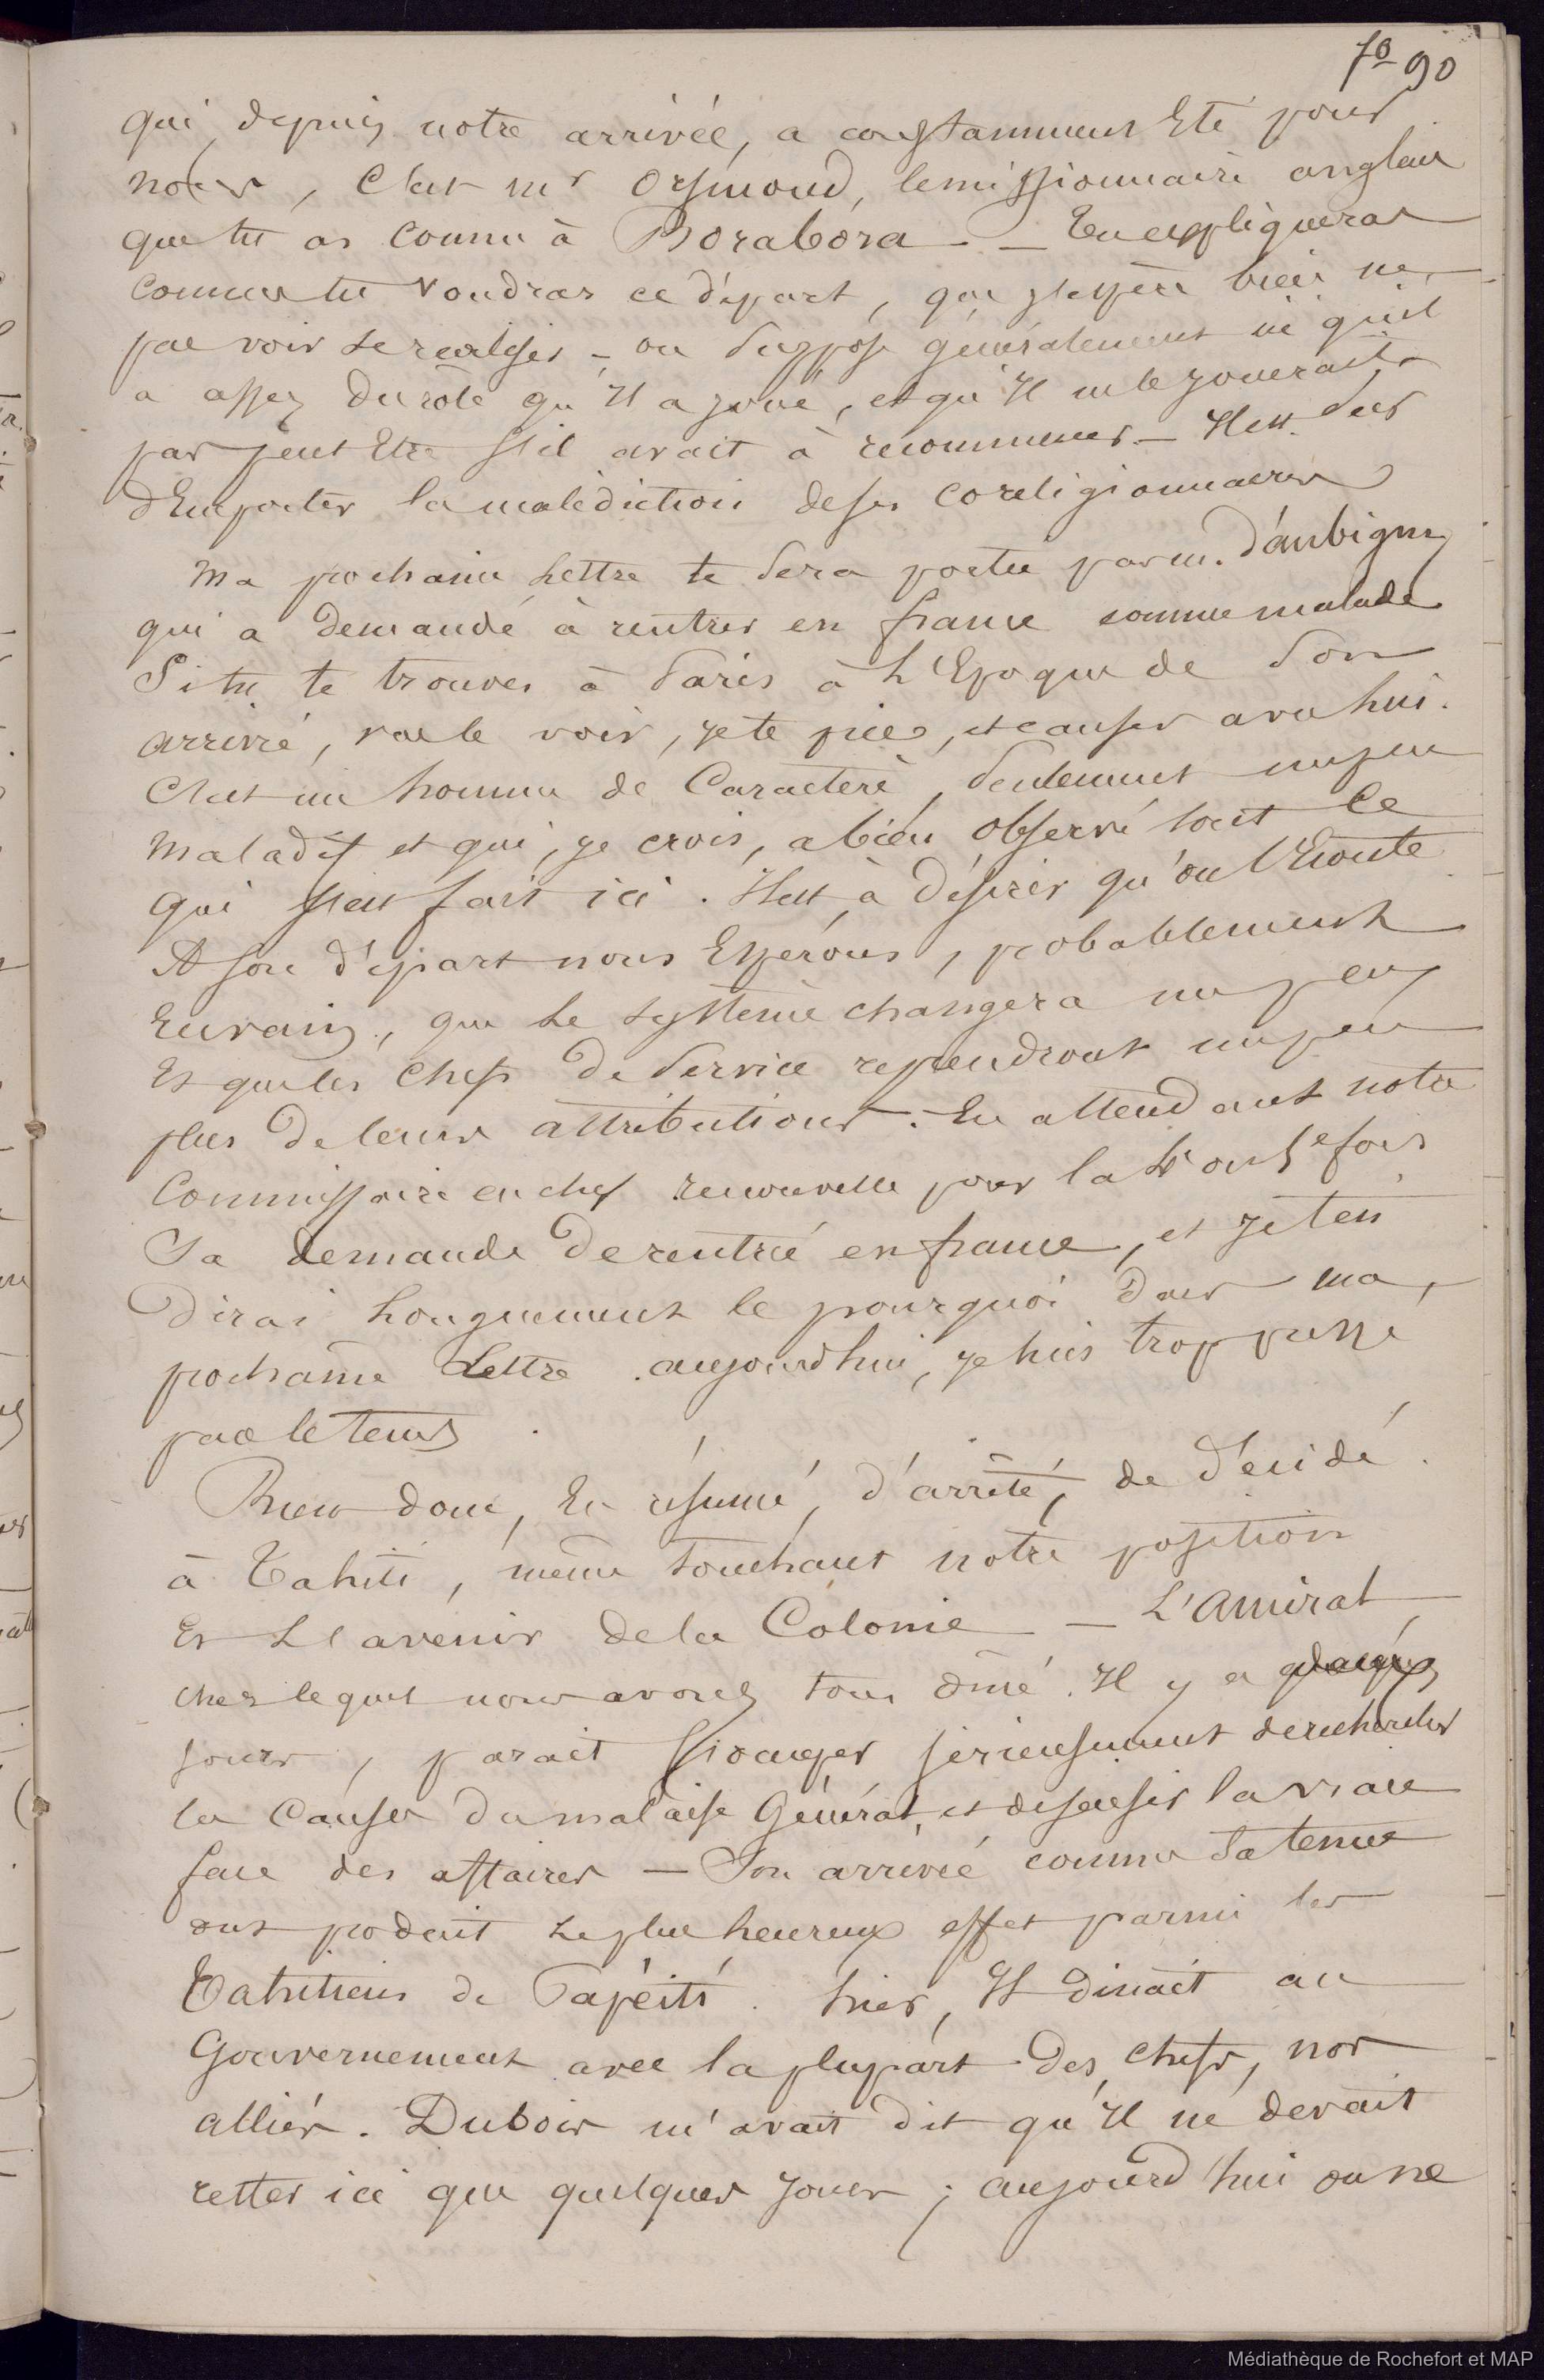 fo 90
qui, depuis notre arrivée, a constamment Eté pour
nous, C'est mr Orsmond, le missionnaire anglais
que tu as connu à Borabora — Tu expliqueras
comme tu voudras ce départ, que j'espère bien ne
pas voir se realiser — on suppose généralement ici qu'il
a assez du rôle qu'Il a joué, et qu'Il ne le jouerait
pas peut Etre s'il avait à recommencer — Il est sur
d'Emporter la malediction de ses coreligionnaires
Ma prochaine Lettre te sera portée par m. d'aubigny
qui a demandé à rentrer en france comme malade
Si tu te trouves à Paris à L'Epoque de Son
arrivée, vas le voir, je te prie, et causer avec lui.
C'est un homme de Caractère, Seulement un peu
maladif et qui, je crois, a bien observé tout Ce
qui s'est fait ici. Il est à désirer qu'on l'Ecoute
A son départ nous Espérons, probablement
En vain, que Le système changera un peu
Et que les Chefs de Service reprendront un peu
plus de leurs attributions. En attendant notre
Commissaire en chef renouvelle pour la 4e ou 5e fois
Sa demande de rentrée en france, et je t'en
Dirai Longuement le pourquoi dans ma
prochaine Lettre. aujourd'hui, je suis trop pressé
par le tems.
Rien donc, En résumé, d'arrêté, de décidé
à Tahiti, même touchant notre position
Et L'avenir de la Colonie — L'Amiral,
chez lequel nous avons tous diné. Il y a quelques
jours, parait s'occuper sérieusement de rechercher
la Cause du malaise Général, et de saisir la vraie
face des affaires — Son arrivée comme sa tenue
ont produit Le plus heureux effet parmi les
Tahitiens de Papéïti. hier, Il dinait au
Gouvernement avec la plupart des chefs, nos
alliés. Dubois m'avait dit qu'Il ne devait
rester ici que quelques jours; aujourd'hui on ne
Médiathèque de Rochefort et MAP